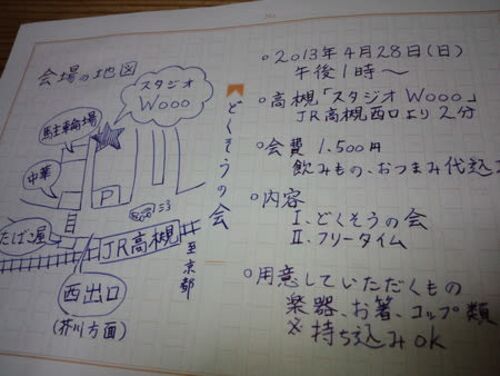 会場の地図
スタジオ
Wooo
駐輪場
中華
P
たばこ屋
JR高槻
至京都
西出口
(芥川方面)
どくそうの会
○2013年4月28日(日)
午後1時〜
○高槻「スタジオWooo」
JR高槻西口より2分
○会費 1,500円
飲みもの、おつまみ代込
○内容
I. どくそうの会
II. フリータイム
○用意していただくもの
楽器、お箸、コップ類
※持ち込みOK